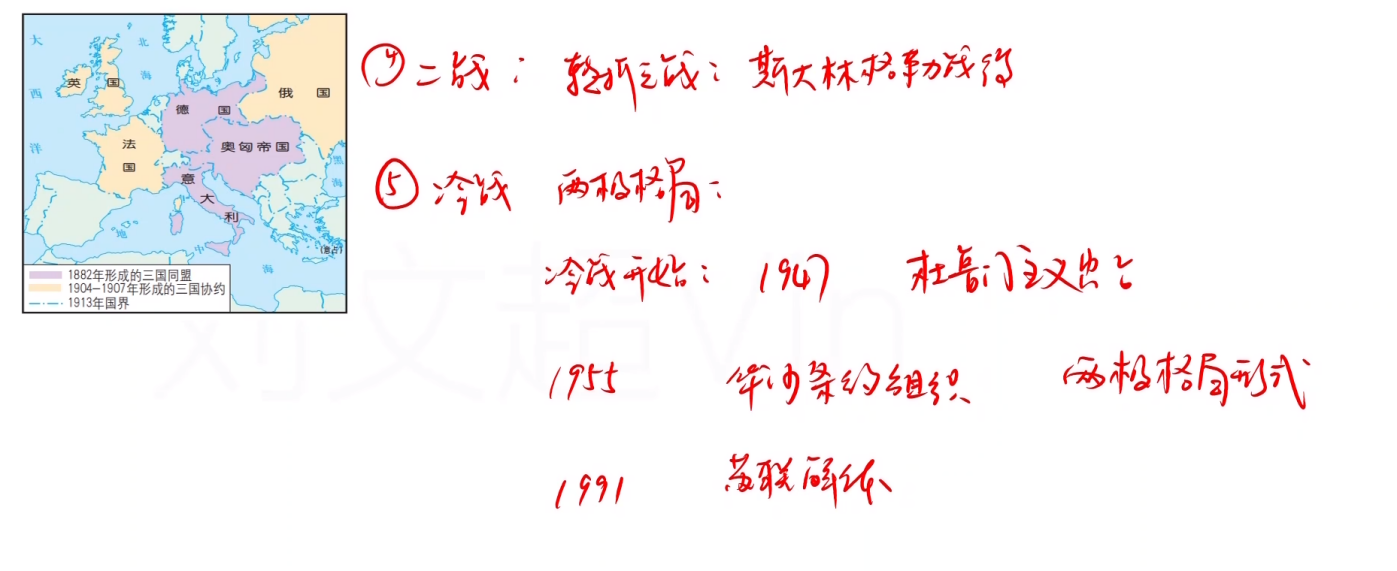 大
西
洋
北
海
英 国
俄 国
德 国
法
国
奥匈帝国
意
大
利
黑
海
地
中
海
1882年形成的三国同盟
1904—1907年形成的三国协约
1913年国界
④二战: 转折之战: 斯大林格勒战役
⑤冷战 两极格局:
冷战开始: 1947 杜鲁门主义出台
1955 华沙条约组织 两极格局形式
1991 苏联解体
刘文超vin